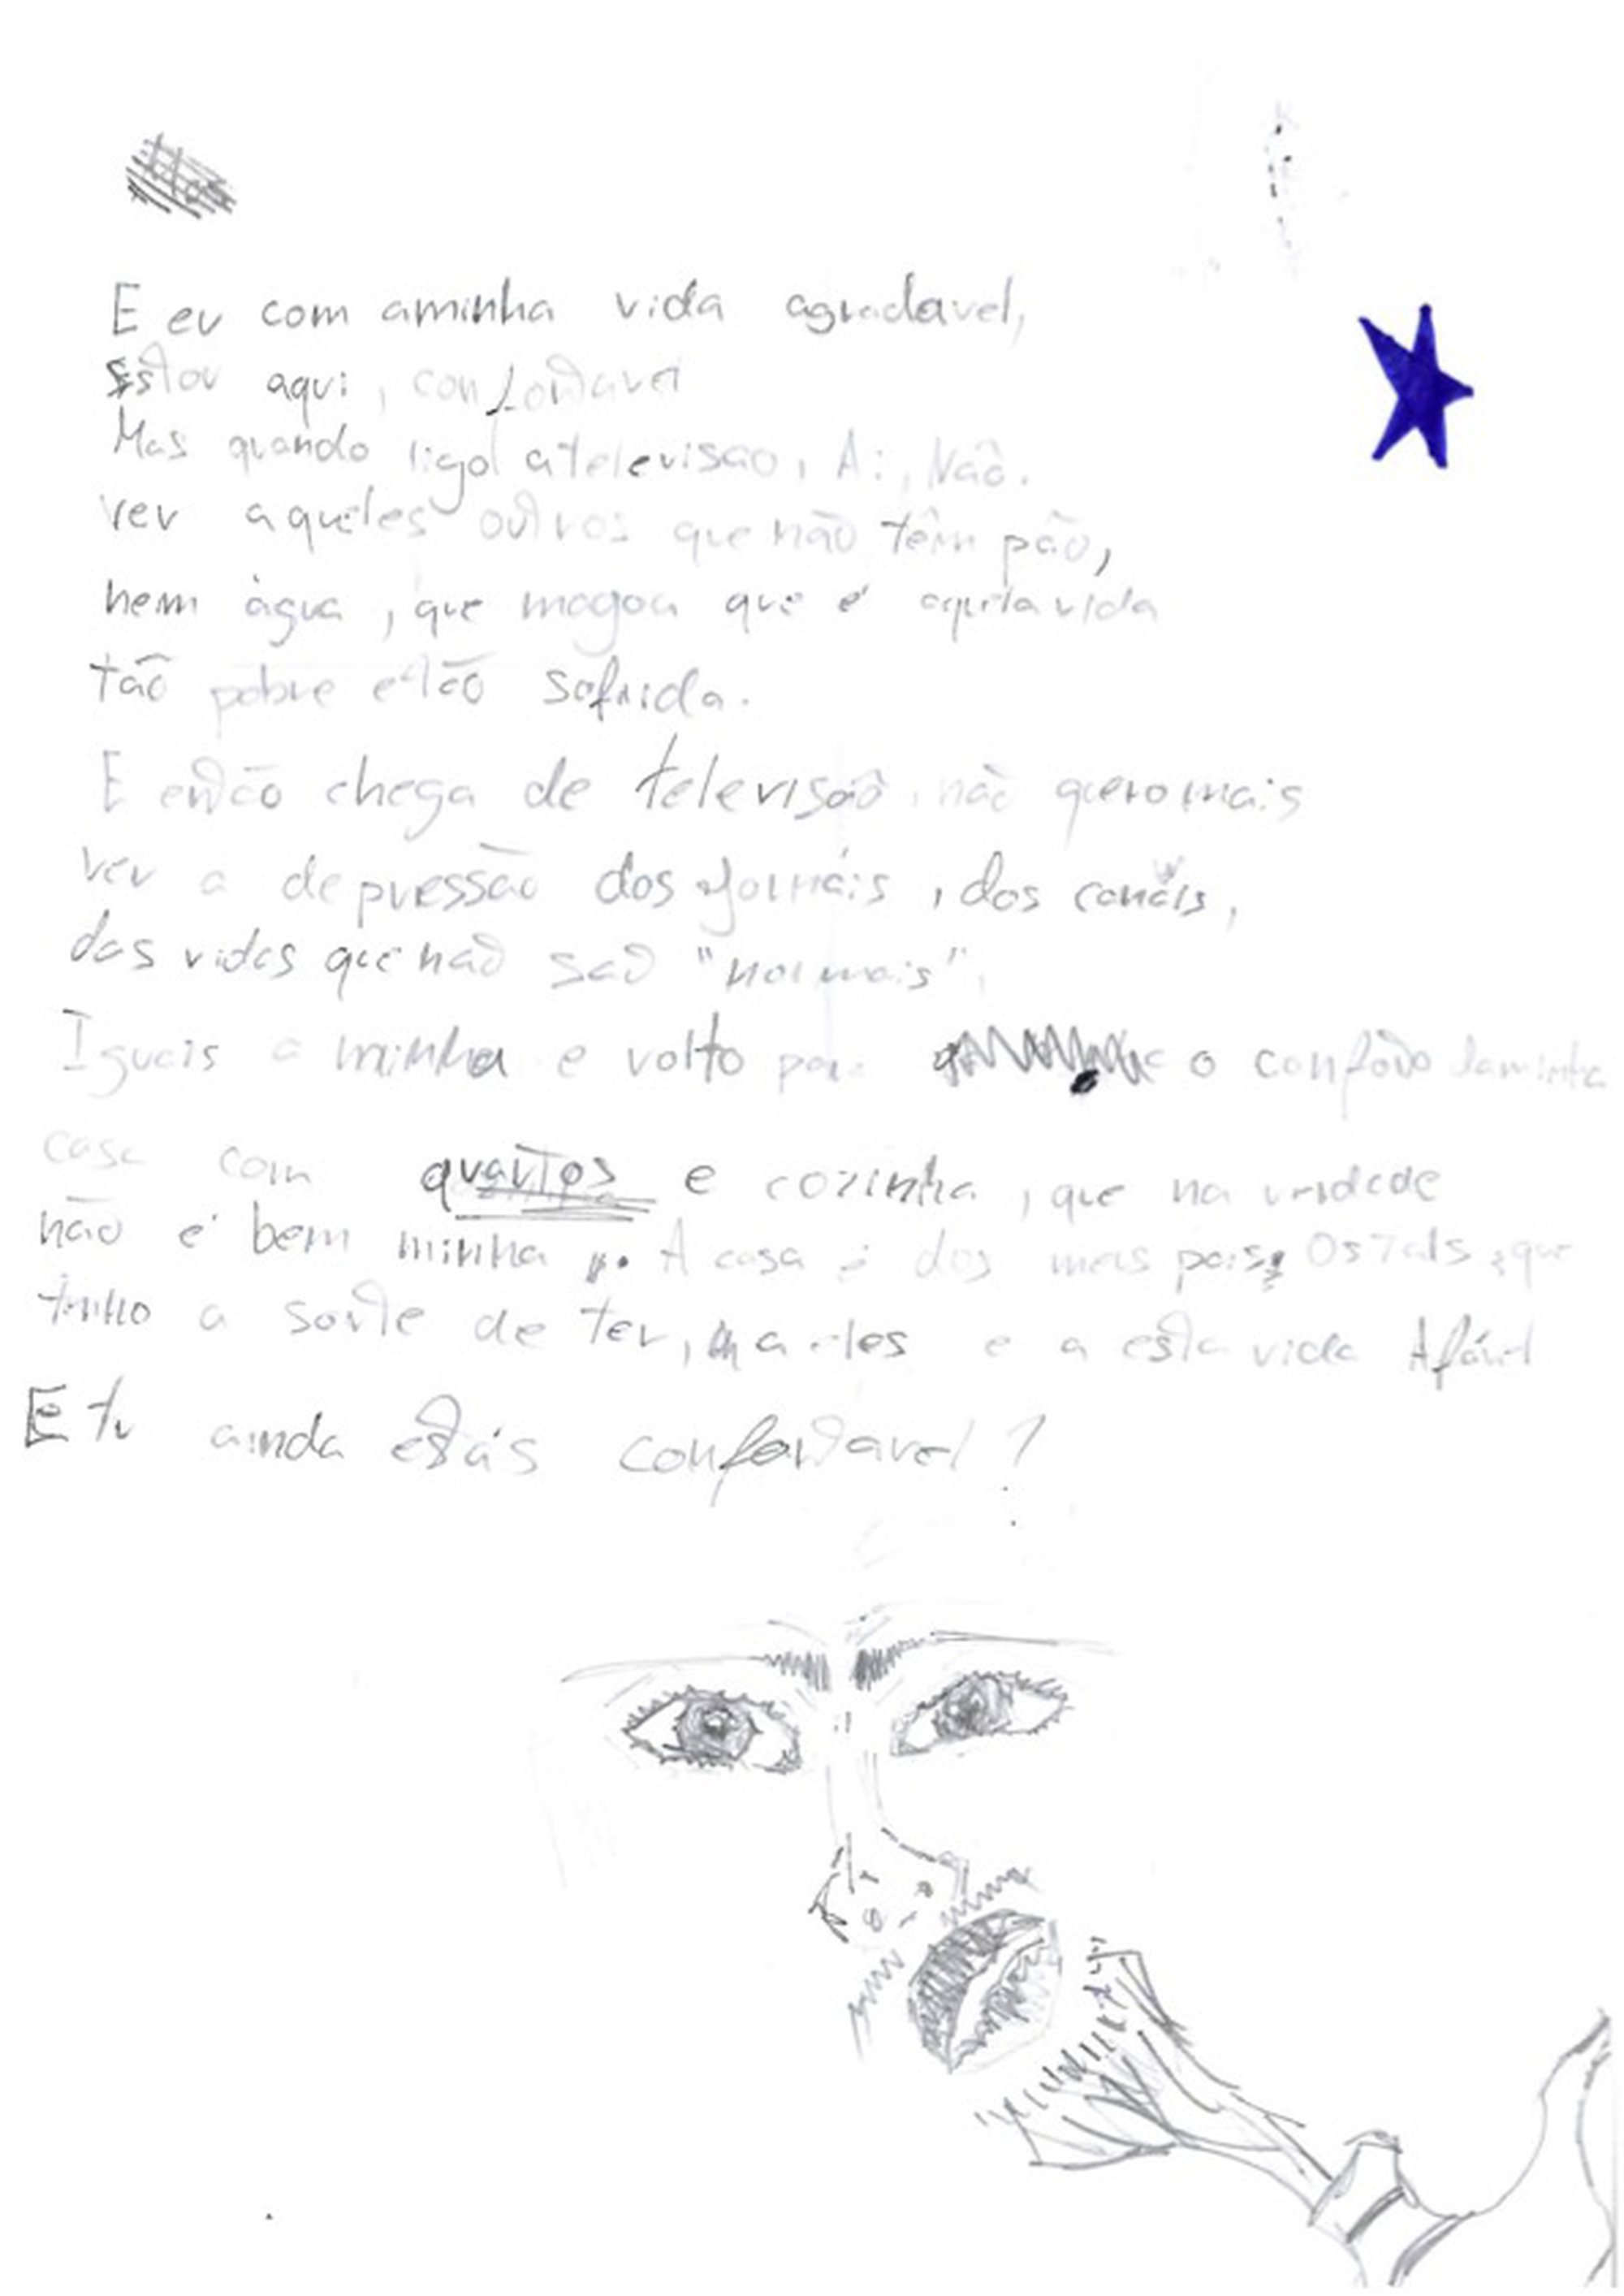 E eu com aminha vida agradavel,
Estou aqui, confortavel
Mas quando ligo a televisao, Ai, Não.
ver aqueles outros que não têm pão,
nem àgua, que magoa que é aquela vida
tão pobre e tão sofrida.
E então chega de televisão, não quero mais
ver a depressão dos jornáis, dos canáis,
das vidas que não são "normais".
Iguais a minha e volto para o conforto da minha
casa com quartos e cozinha, que na verdade
não é bem minha. A casa é dos meus pais, Os tais, que
tenho a sorte de ter, a eles e a esta vida Afável
E tu ainda estás confortavel?